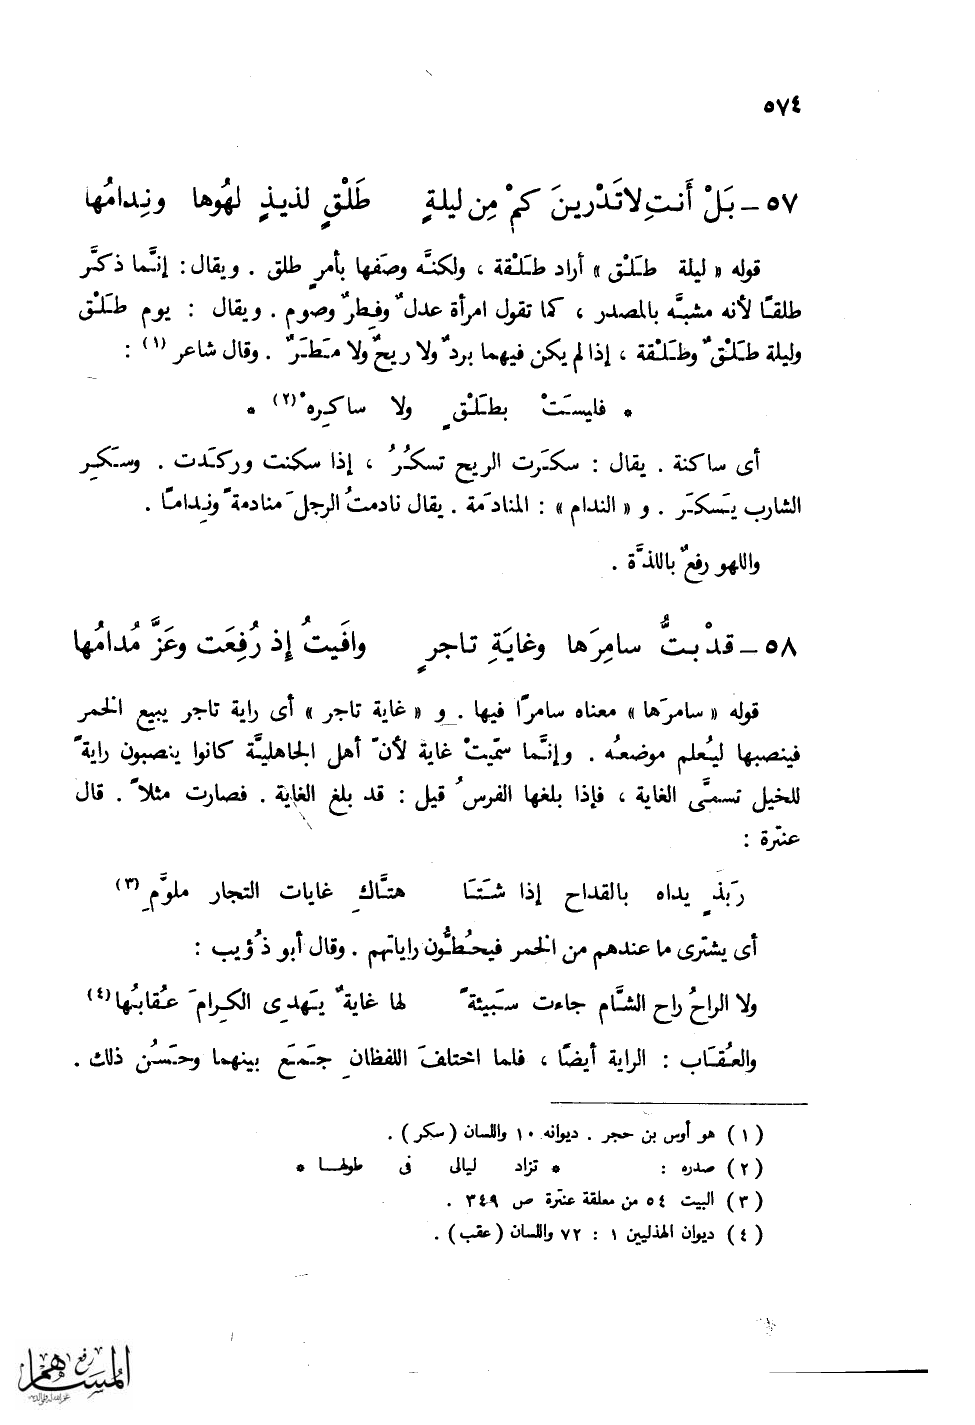 ٥٧٤
٥٧ ـ بَلْ أَنتِ لا تَدْرينَ كمْ مِن ليلةٍ طَلْقٍ لذيذٍ لهْوُها ونِدامُها
قوله « ليلة طَلْق » أراد طَلْقة ، ولكنَّه وصفها بأمرٍ طلق . ويقال : إنَّما ذكَّر
طلقًا لأنه مشبَّه بالمصدر ، كما تقول امرأة عدلٌ وفِطرٌ وصوم . ويقال : يوم طَلْق
وليلة طَلْقٌ وطَلْقة ، إذا لم يكن فيهما بردٌ ولا ريحٌ ولا مَطَرٌ . وقال شاعر (١) :
* فليسَتْ بطَلْقٍ ولا ساكِره (٢) *
أى ساكنة . يقال : سكَرت الريح تسكُرُ ، إذا سكنت وركَدت . وسَكِر
الشارب يَسكَر . و « الندام » : المنادَمة . يقال نادمتُ الرجلَ منادمةً ونِدامًا .
واللهو رفعٌ باللذَّة .
٥٨ ـ قدْ بتُّ سامِرَها وغايَةِ تاجرٍ وافَيتُ إذ رُفِعَت وعَزَّ مُدامُها
قوله « سامرَها » معناه سامرًا فيها . و « غاية تاجر » أى راية تاجر يبيع الخمر
فينصبها ليُعلم موضعُه . وإنَّما سمِّيتْ غاية لأنّ أهل الجاهليَّة كانوا ينصبون رايةً
للخيل تسمَّى الغاية ، فإذا بلغها الفرسُ قيل : قد بلغ الغاية . فصارت مثلاً . قال
عنترة :
رَبَذٍ يداه بالقداح إذا شَتَا هتَّاكِ غايات التجار ملوَّمِ (٣)
أى يشترى ما عندهم من الخمر فيحُطُّون راياتهم . وقال أبو ذُؤيب :
ولا الراحُ راح الشَّام جاءت سَبيئةً لها غايةٌ يَهدِى الكِرامَ عُقابُها (٤)
والعُقَاب : الراية أيضًا ، فلما اختلفَ اللفظانِ جَمَع بينهما وحَسُن ذلك .
(١) هو أوس بن حجر . ديوانه ١٠ واللسان (سكر) .
(٢) صدره : * تزاد ليالى فى طولها *
(٣) البيت ٥٤ من معلقة عنترة ص ٣٤٩ .
(٤) ديوان الهذليين ١ : ٧٢ واللسان (عقب) .
رفع
المساهم